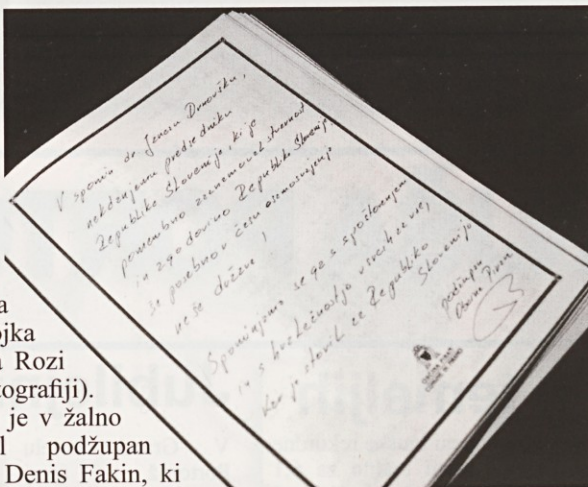 V spomin dr. Janezu Drnovšku,
nekdanjemu predsedniku
Republike Slovenije, ki je
pomembno zaznamoval stvarnost
in zgodovino Republike Slovenije,
še posebno v času osamosvajanja
naše države!
Spominjamo se ga s spoštovanjem
in s hvaležnostjo v srcih za vse,
kar je storil za Republiko
Slovenijo
podžupan
Občine Piran
a
ojka
a Rozi
tografiji).
je v žalno
l podžupan
Denis Fakin, ki